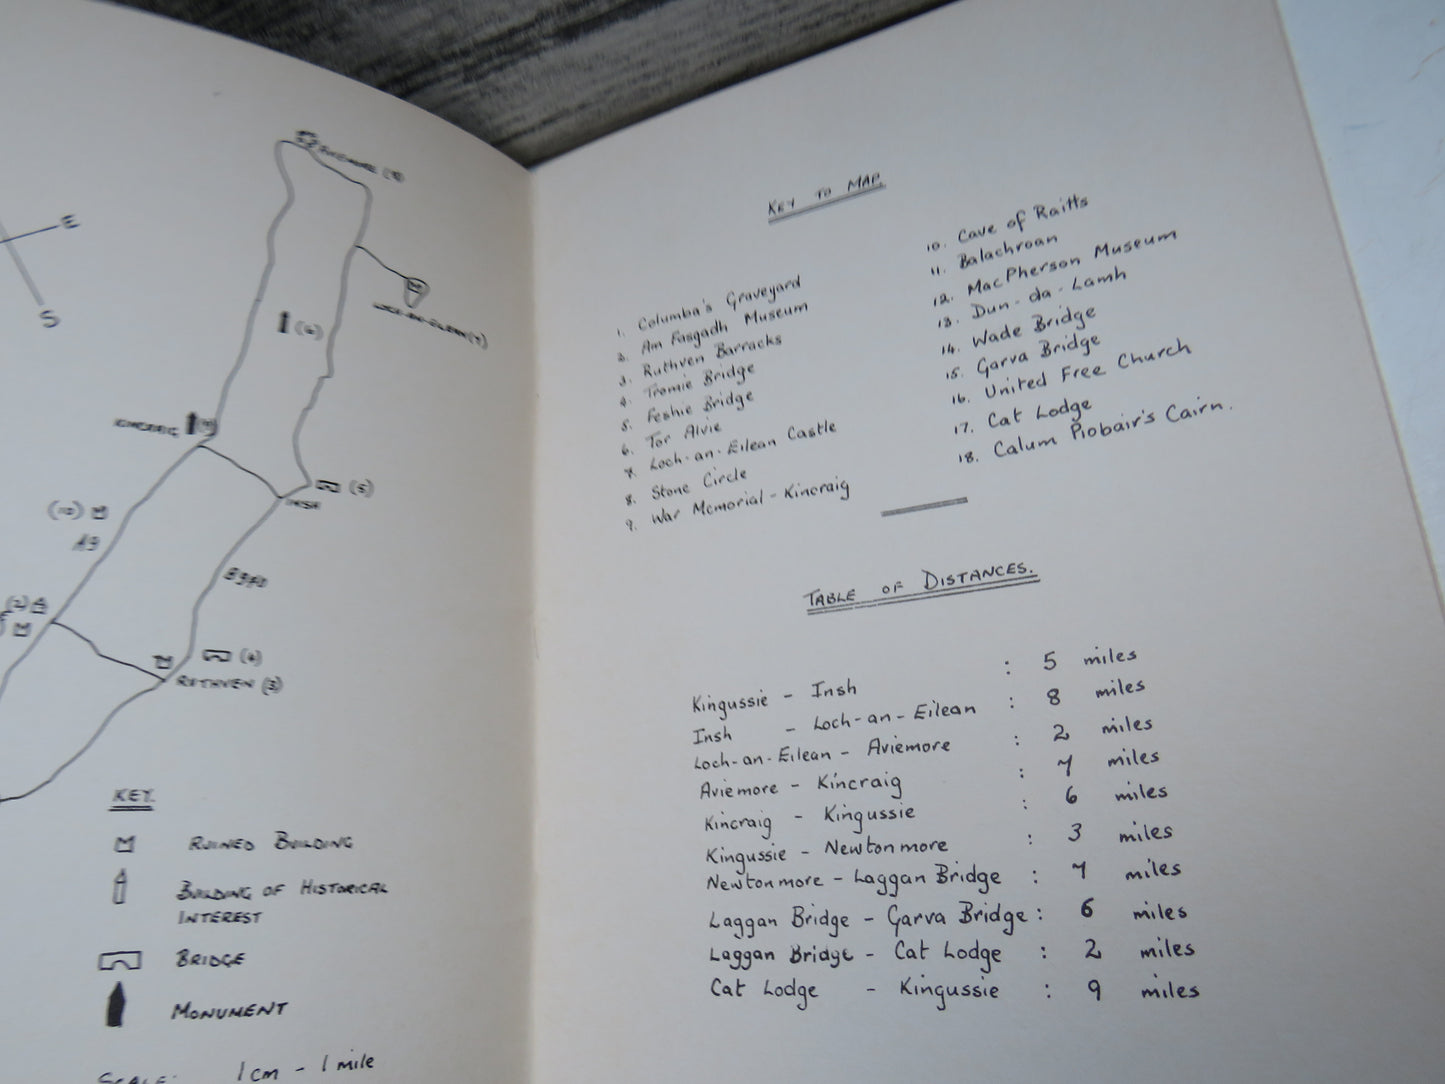 E
S
(6)
KINCRAIG (9)
(5)
INSH
(10)
A9
B970
(2)
(4)
RUTHVEN (3)
KEY.
RUINED BUILDING
BUILDING OF HISTORICAL
INTEREST
BRIDGE
MONUMENT
SCALE: 1cm - 1 mile
KEY TO MAP.
1. Columba's Graveyard
2. Am Fasgadh Museum
3. Ruthven Barracks
4. Tromie Bridge
5. Feshie Bridge
6. Tor Alvie
7. Loch-an-Eilean Castle
8. Stone Circle
9. War Memorial - Kincraig
10. Cave of Raitts
11. Balachroan
12. MacPherson Museum
13. Dun-da-Lamh
14. Wade Bridge
15. Garva Bridge
16. United Free Church
17. Cat Lodge
18. Calum Piobair's Cairn.
TABLE OF DISTANCES.
Kingussie - Insh : 5 miles
Insh - Loch-an-Eilean : 8 miles
Loch-an-Eilean - Aviemore : 2 miles
Aviemore - Kincraig : 7 miles
Kincraig - Kingussie : 6 miles
Kingussie - Newtonmore : 3 miles
Newtonmore - Laggan Bridge : 7 miles
Laggan Bridge - Garva Bridge : 6 miles
Laggan Bridge - Cat Lodge : 2 miles
Cat Lodge - Kingussie : 9 miles